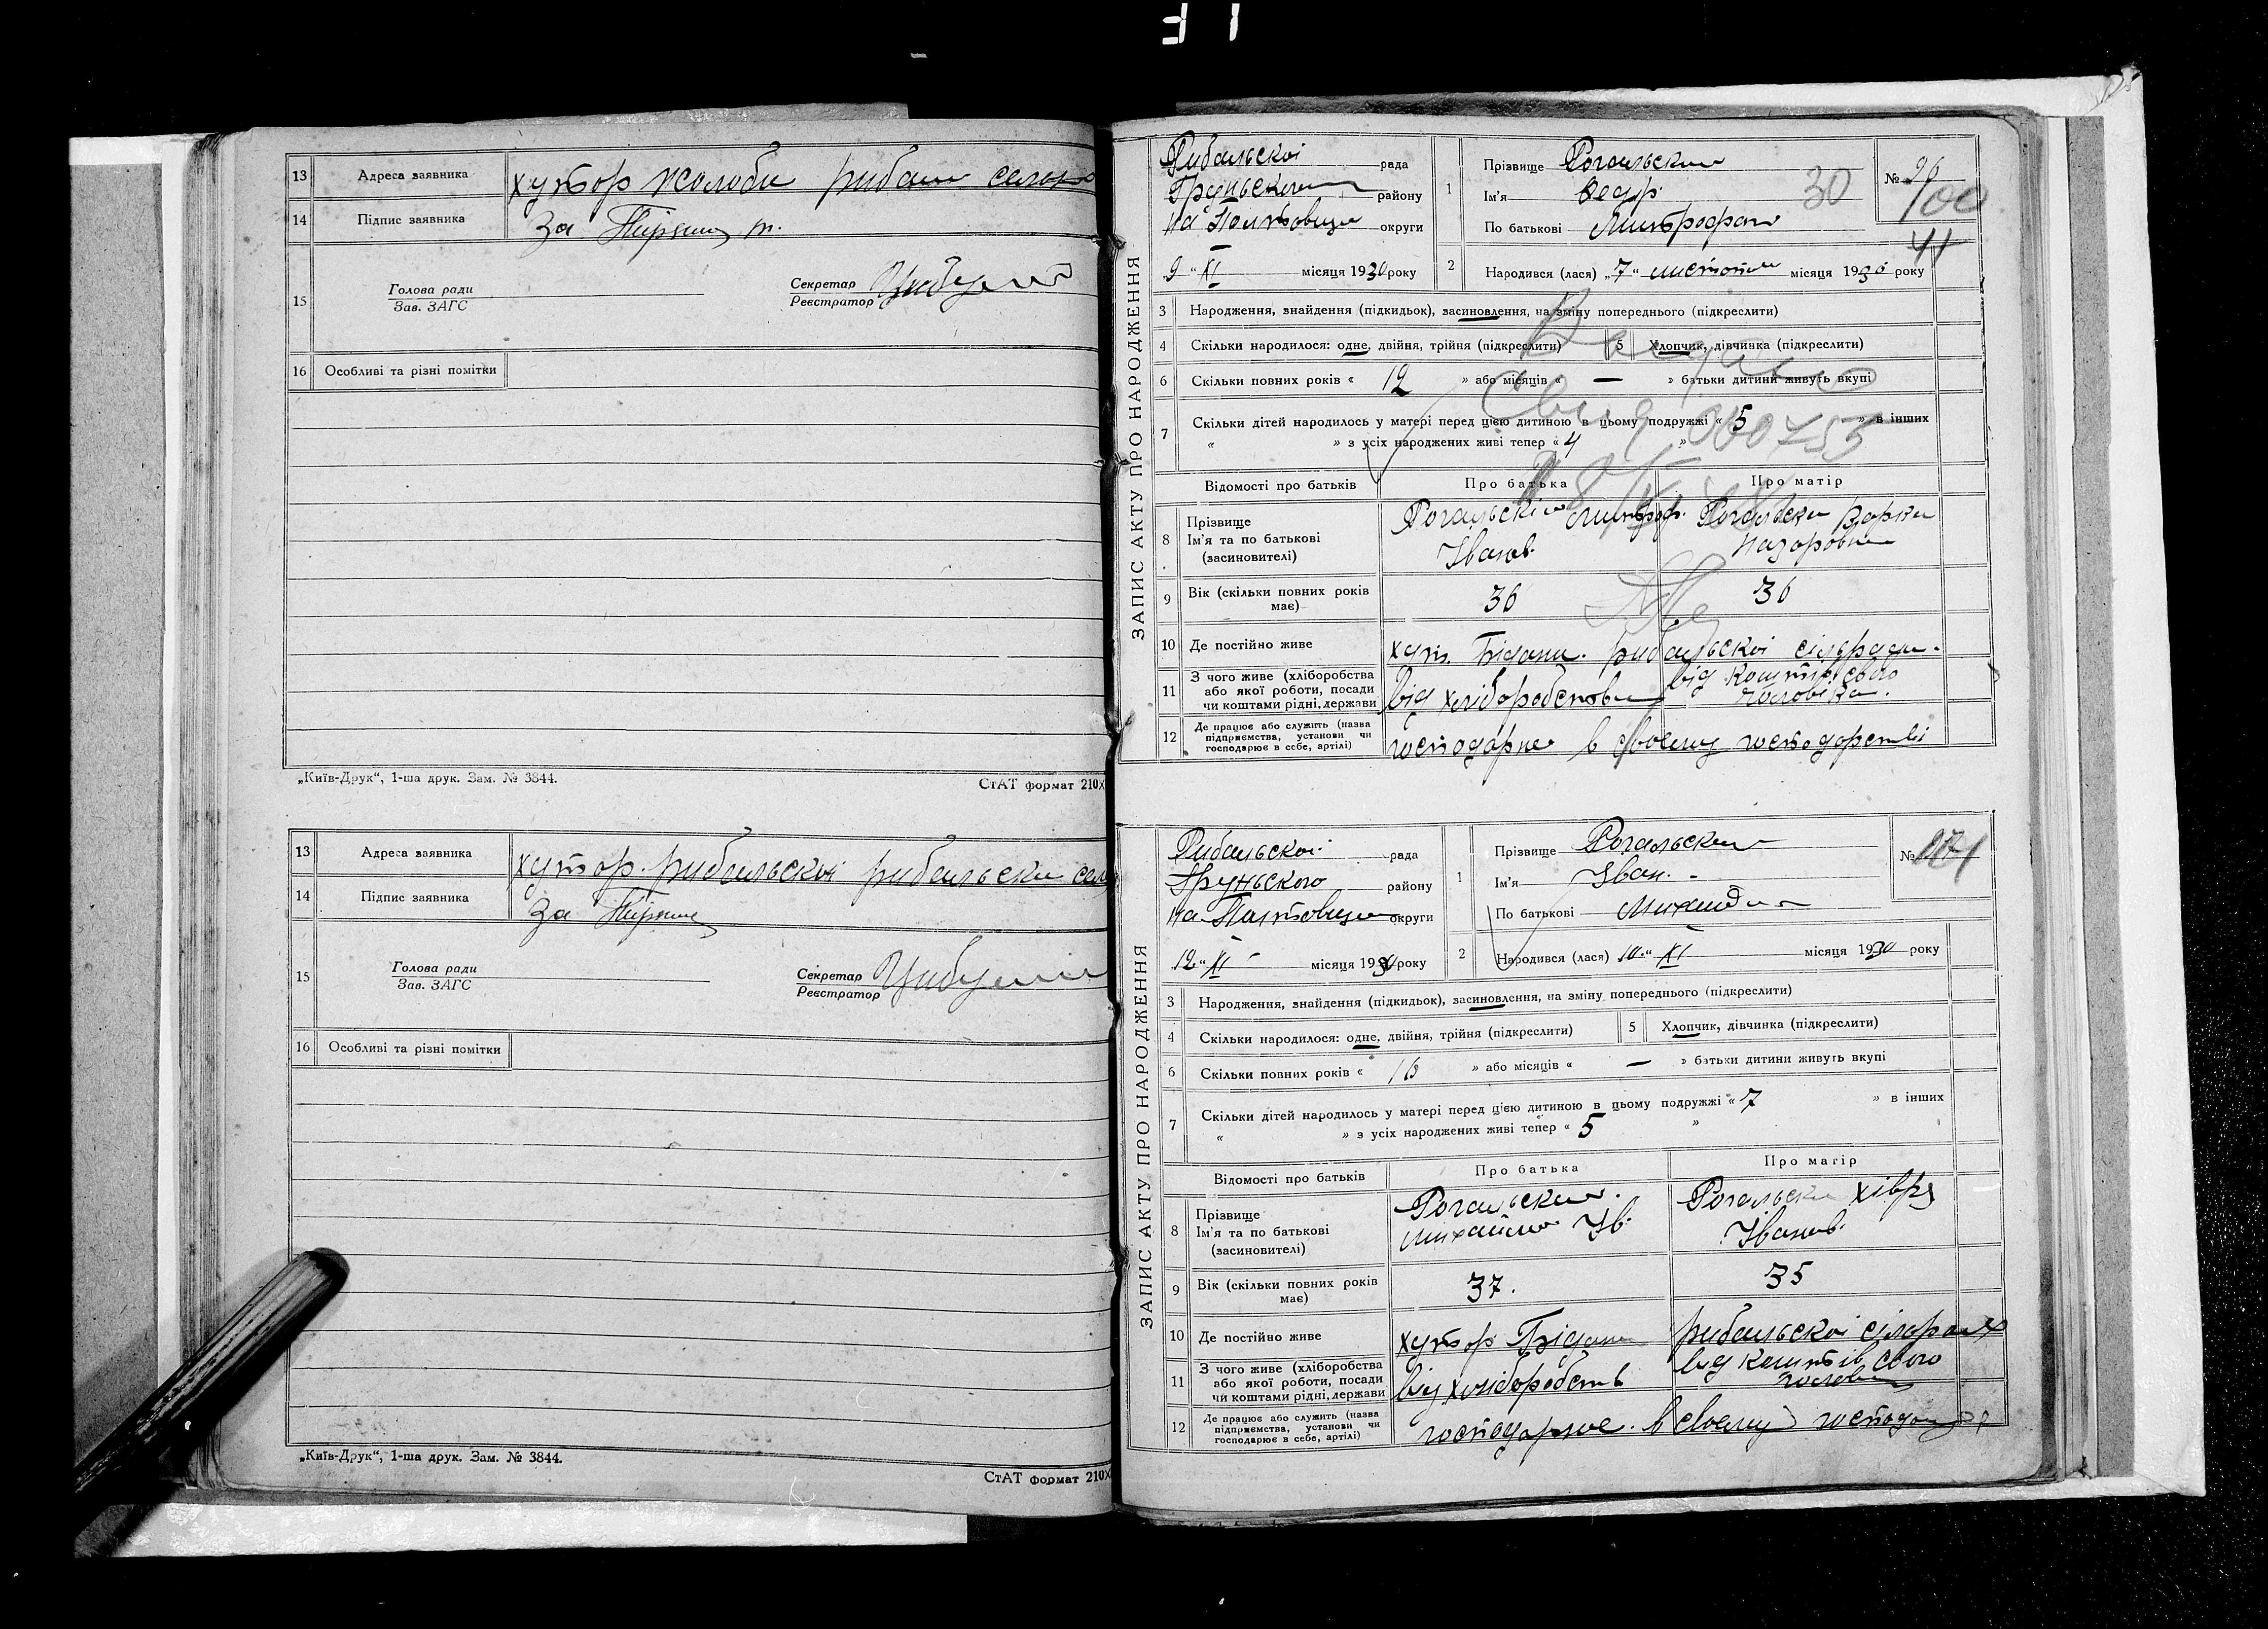 13 Адреса заявника хутор Жолоби
14 Підпис заявника За
15 Голова ради
Зав. ЗАГС
Секретар
Реєстратор
16 Особливі та різні помітки
„Київ-Друк“, 1-ша друк. Зам. № 3844.
СтАТ формат 210X
13 Адреса заявника хутор рибальскоі
14 Підпис заявника За
15 Голова ради
Зав. ЗАГС
Секретар
Реєстратор
16 Особливі та різні помітки
„Київ-Друк“, 1-ша друк. Зам. № 3844.
СтАТ формат 210X
ЗАПИС АКТУ ПРО НАРОДЖЕННЯ
Рибальскоі рада
Груньского району
на округи
9 “ XI місяця 1930 року
1 Прізвище Рогальский
Ім'я Федір
По батькові Митрофан
30
№ 96
100
41
2 Народився (лася) „7“ листопа місяця 1930 року
3 Народження, знайдення (підкидьок), засиновлення, на зміну попереднього (підкреслити)
4 Скільки народилося: одне, двійня, трійня (підкреслити) 5 Хлопчик, дівчинка (підкреслити)
6 Скільки повних років « 12 » або місяців « — » батьки дитини живуть вкупі
7 Скільки дітей народилось у матері перед цією дитиною в цьому подружжі « 5 » в інших
« » з усіх народжених живі тепер « 4 »
Відомості про батьків Про батька Про матір
8 Прізвище
Ім'я та по батькові
(засиновителі)
Рогальскій Митроф.
Іванов.
Рогальска Варка
Назаровна
9 Вік (скільки повних років має) 36 36
10 Де постійно живе хут. Бідани. рибальскоі сільради.
11 З чого живе (хліборобства
або якої роботи, посади
чи коштами рідні, держави
від хліборобства
від коштів свого
чоловіка.
12 Де працює або служить (назва
підприємства, установи чи
господарює в себе, артілі)
господарює в своєму господарстві
ЗАПИС АКТУ ПРО НАРОДЖЕННЯ
Рибальскоі рада
Груньского району
на округи
12 “ XI місяця 1930 року
1 Прізвище Рогальский
Ім'я Іван. -
По батькові Михайл
№
2 Народився (лася) 10 “ XI місяця 1930 року
3 Народження, знайдення (підкидьок), засиновлення, на зміну попереднього (підкреслити)
4 Скільки народилося: одне, двійня, трійня (підкреслити) 5 Хлопчик, дівчинка (підкреслити)
6 Скільки повних років « » або місяців « — » батьки дитини живуть вкупі
7 Скільки дітей народилось у матері перед цією дитиною в цьому подружжі « 7 » в інших
« » з усіх народжених живі тепер « 5 »
Відомості про батьків Про батька Про матір
8 Прізвище
Ім'я та по батькові
(засиновителі)
Рогальский.
Михайло Ів.
Рогальска Хівря
Іванов.
9 Вік (скільки повних років має) 37. 35
10 Де постійно живе хутор Бідани рибальскоі сілради
11 З чого живе (хліборобства
або якої роботи, посади
чи коштами рідні, держави
від хліборобств
від коштів свого
чоловіка
12 Де працює або служить (назва
підприємства, установи чи
господарює в себе, артілі)
господарює. в своєму